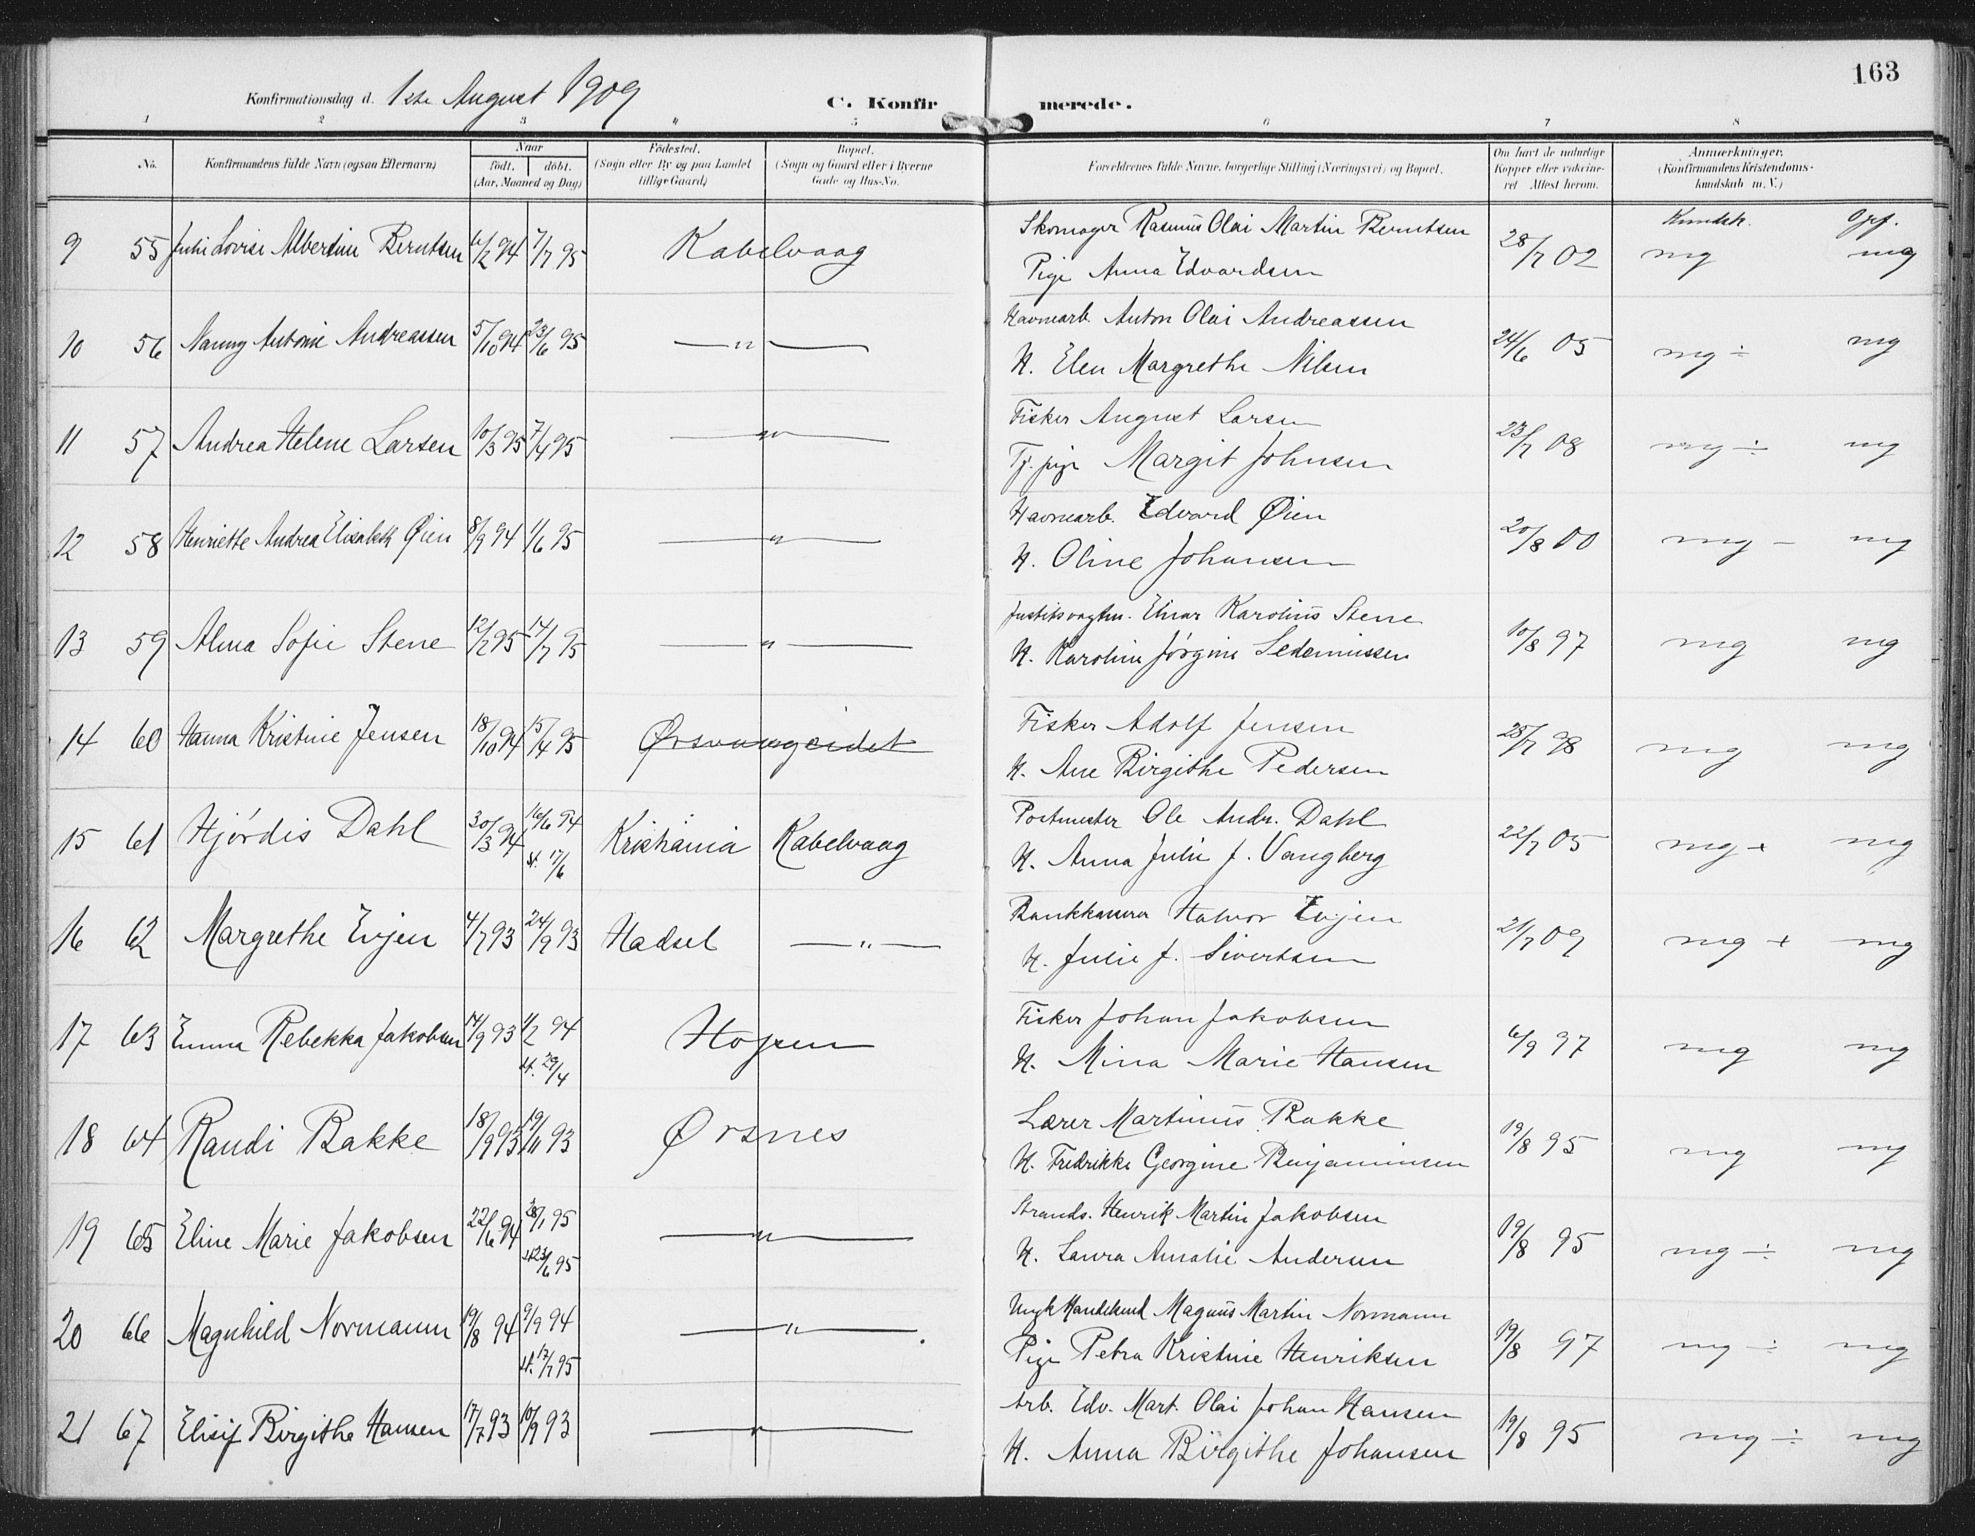 163
Konfirmationsdag d. 1ste August 1909 C. Konfirmerede.
1 2 3 4 5 6 7 8
No. Konfirmandens fulde Navn (ogsaa Efternavn) Naar født. døbt. (Aar, Maaned og Dag) Fødested. (Sogn eller By og paa Landet tillige Gaard) Bopæl. (Sogn og Gaard eller i Byerne Gade og Hus-No. Forældrenes fulde Navne, borgerlige Stilling (Næringsvei) og Bopæl. Om havt de naturlige Kopper eller vaccineret Attest herom. Anmærkninger. (Konfirmandens Kristendomskundskab m. V.)
Kundsk. Opf.
9 55 Julie Lovise Albertine Berntsen 6/2 94 7/7 95 Kabelvaag Skomager Rasmus Olai Martin Berntsen 28/7 02 mg mg
Pige Anna Edvardsen
10 56 Nanny Antonie Andreassen 5/10 94 23/6 95 — " — Havnearb. Anton Olai Andreassen 24/6 05 mg ÷ mg
H. Elen Margrethe Nilsen
11 57 Andrea Helene Larsen 10/3 95 7/4 95 — " — Fisker August Larsen 23/7 08 mg ÷ mg
Tj. pige Margit Johnsen
12 58 Henriette Andrea Elisabeth Øien 8/9 94 1/6 95 — " — Havnearb. Edvard Øien 20/8 00 mg – mg
H. Oline Johansen
13 59 Alma Sofie Stene 12/2 95 14/7 95 — " — Justitsvagtm. Einar Karolius Stene 10/8 97 mg mg
H. Karoline Jørgine
14 60 Hanna Kristine Jensen 18/10 94 15/4 95 Ørsvaageidet Fisker Adolf Jensen 25/7 98 mg mg
H. Ane Birgithe Pedersen
15 61 Hjördis Dahl 30/3 94 16/6 94 st. 17/6 Kristiania Kabelvaag Postmester Ole Andr. Dahl 22/7 05 mg + mg
H. Anna Julie J. Vangberg
16 62 Margrethe Evjen 4/7 93 24/9 93 Hadsel — " — Bankkasserer Halvor Evjen 21/7 09 mg + mg
H. Julie J. Sivertsen
17 63 Emma Rebekka Jakobsen 14/9 93 1/2 94 st. 29/4 Hopen Fisker Johan Jakobsen 6/9 97 mg mg
H. Mina Marie Hansen
18 64 Randi Bakke 18/9 93 19/11 93 Ørsnes Lærer Martinus Bakke 19/8 95 mg mg
H. Fredrikke Georgine Benjaminsen
19 65 Eline Marie Jakobsen 22/6 94 28/1 95 st. 23/6 95 — " — Strands. Henrik Martin Jakobsen 19/8 95 mg ÷ mg
H. Laura Amalie Andersen
20 66 Magnhild Normann 19/8 94 9/9 94 st. 17/7 95 — " — . Ungk Handelsmd Magnus Martin Normann 19/8 97 mg ÷ mg
Pige Petra Kristine Henriksen
21 67 Elisif Birgithe Hansen 17/7 93 10/9 93 — " — Arb. Edv. Mart. Olai Johan Hansen 19/8 95 mg ÷ mg
H. Anna Birgithe Johansen